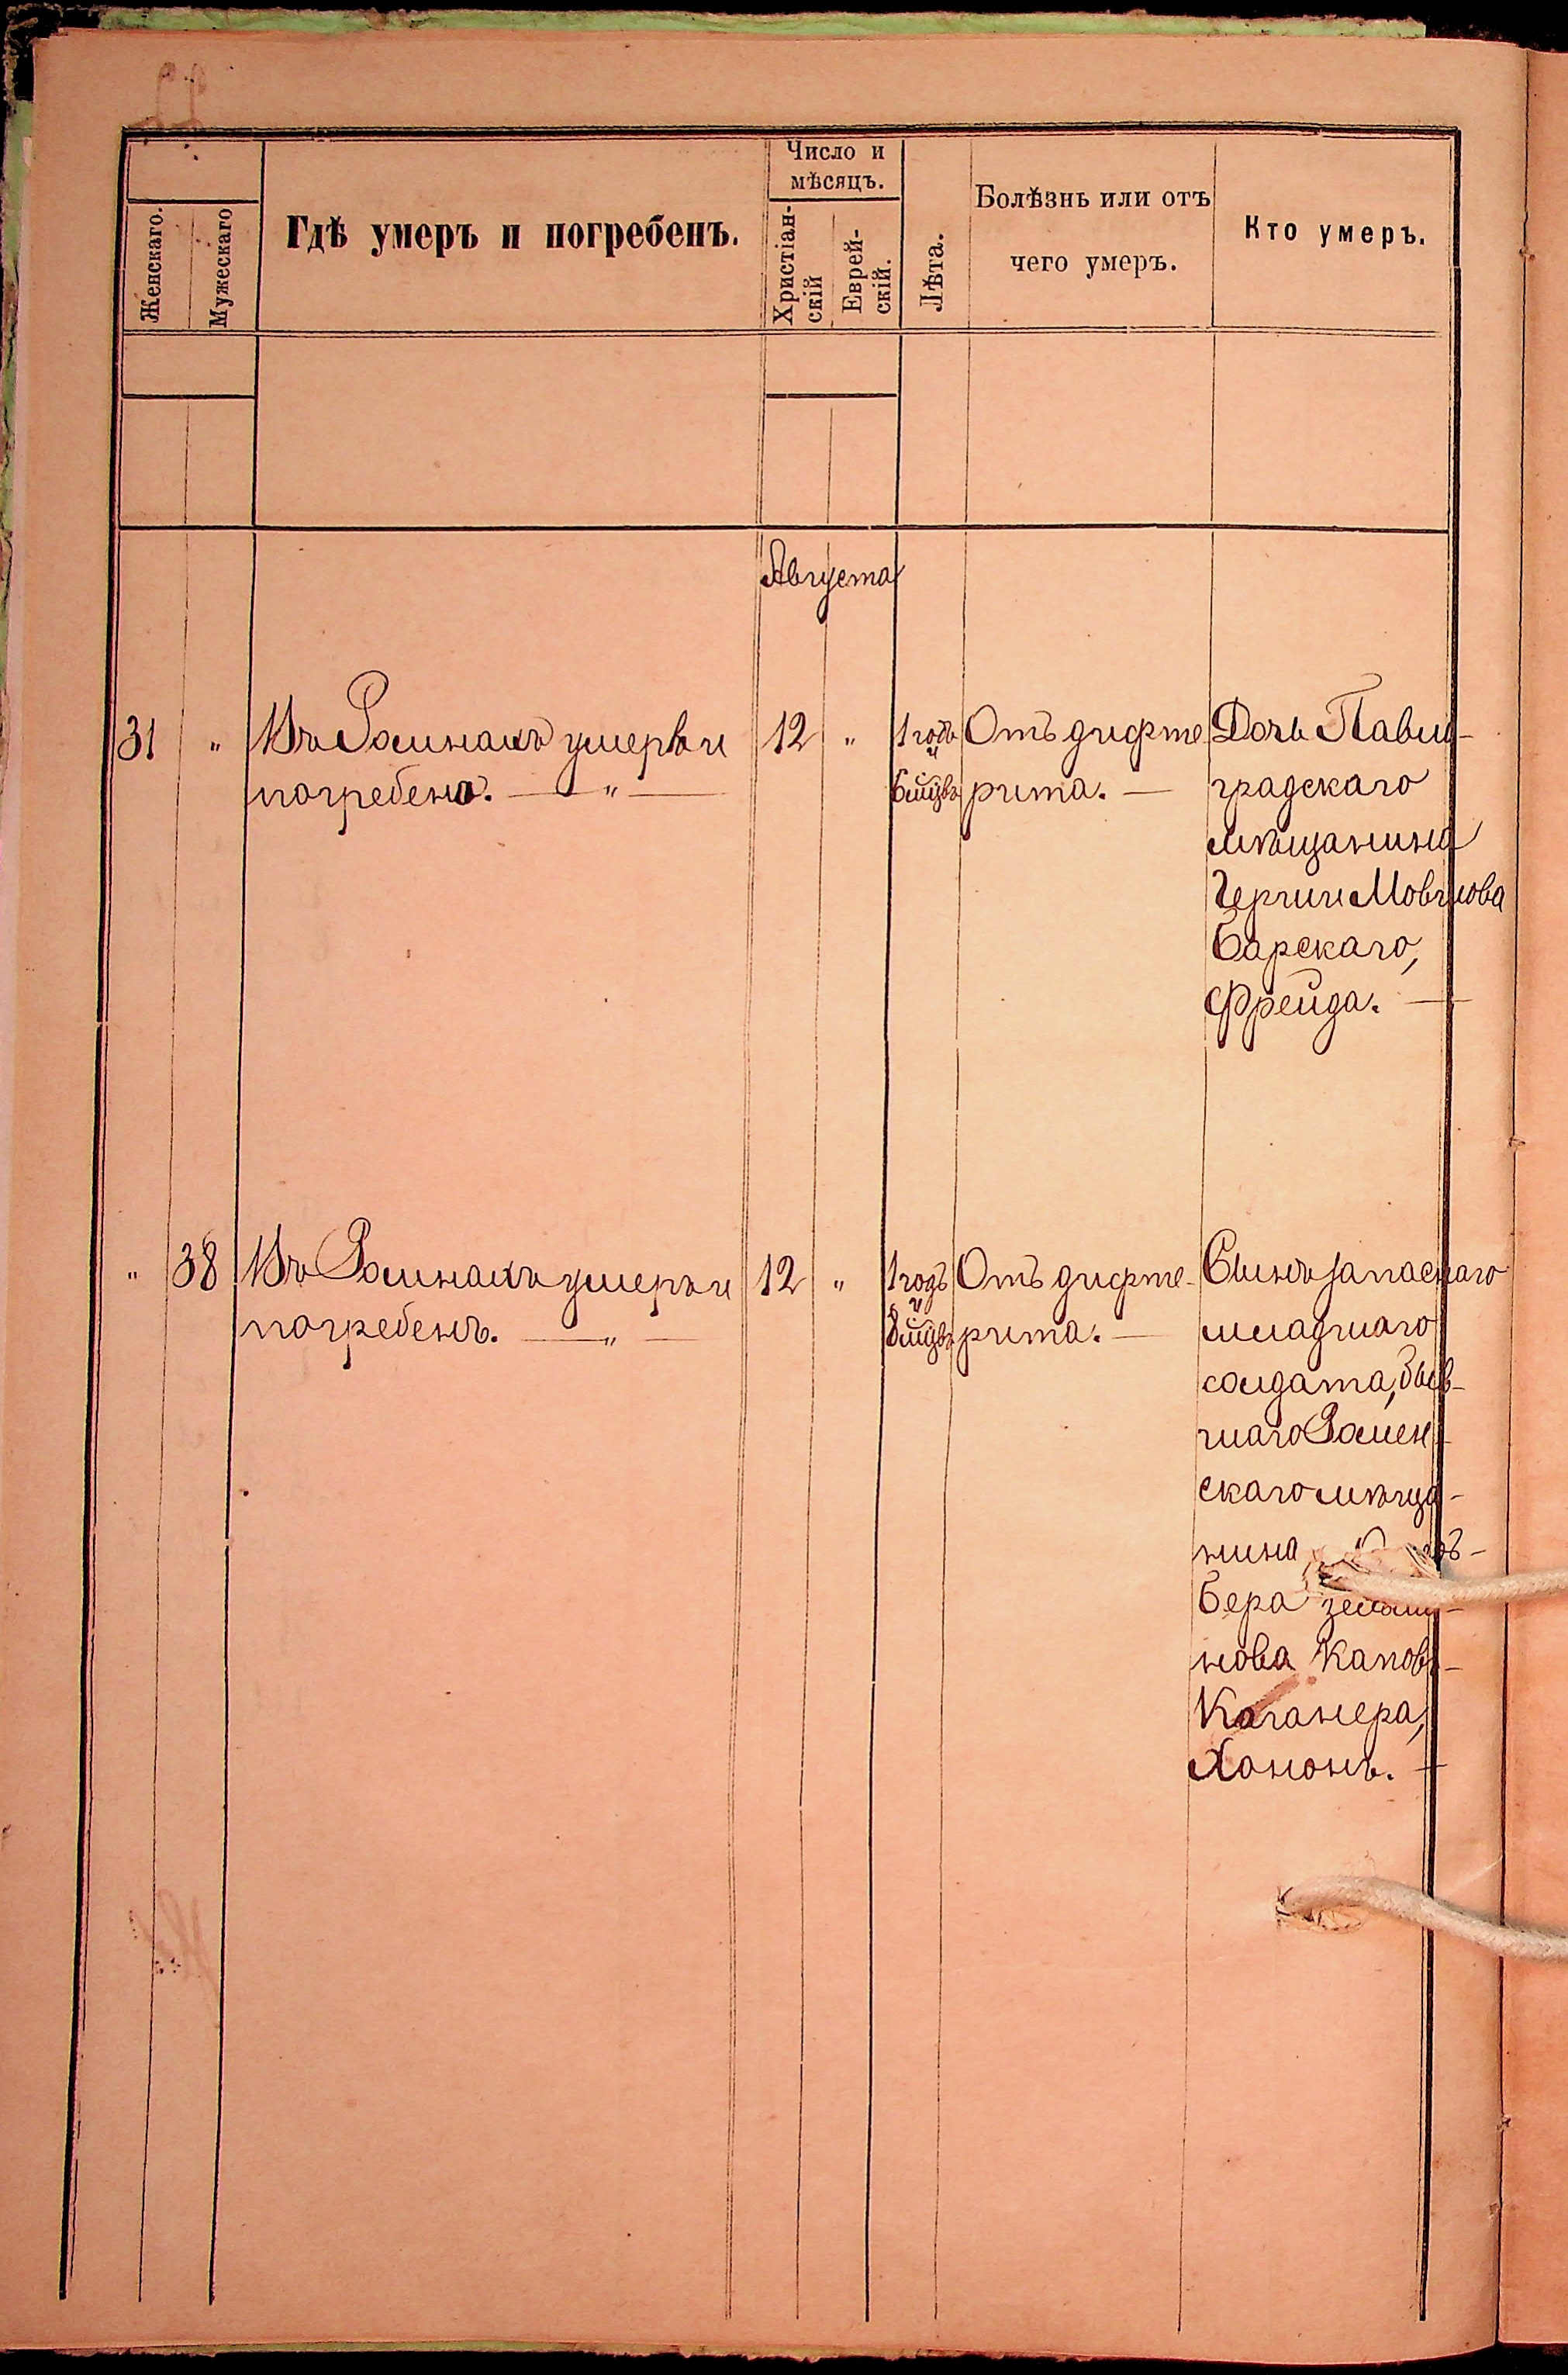 Женскаго.
Мужескаго
Гдѣ умеръ и погребенъ.
Число и
мѣсяцъ.
Христіан-
скій
Еврей-
скій.
Лѣта.
Болѣзнь или отъ
чего умеръ.
Кто умеръ.
Августа
31 " Въ Ромнахъ умерла и
погребена. — " —
12 "
1 годъ
и
6 мѣсц.
Отъ дифте
рита. —
Дочь Павло-
градскаго
мѣщанина
Герши Мовшова
Барскаго,
Фрейда. —
" 38 Въ Ромнахъ умеръ и
погребенъ. — " —
12 "
1 годъ
и
8 мѣсц.
Отъ дифте-
рита. —
Сынъ запаснаго
младшаго
солдата, быв-
шаго Ромен-
скаго мѣща-
нина
Бера Зельма-
нова
Каганера,
Хононъ. —